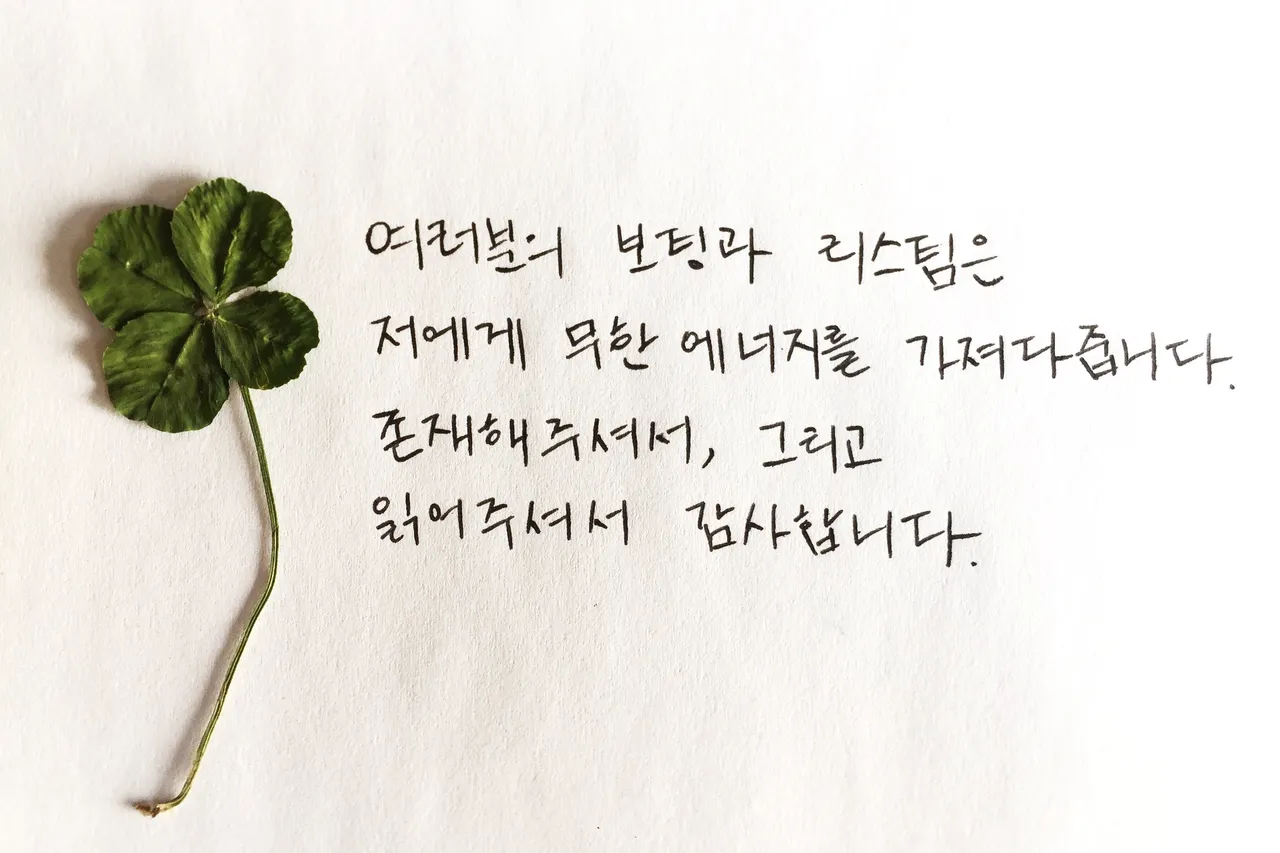 여러분의 보팅과 리스팀은
저에게 무한 에너지를 가져다줍니다.
존재해주셔서, 그리고
읽어주셔서 감사합니다.